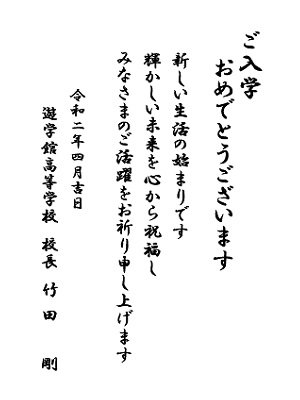 ご入学
おめでとうございます
新しい生活の始まりです
輝かしい未来を心から祝福し
みなさまのご活躍をお祈り申し上げます
令和二年四月吉日
遊学館高等学校 校長 竹田 剛